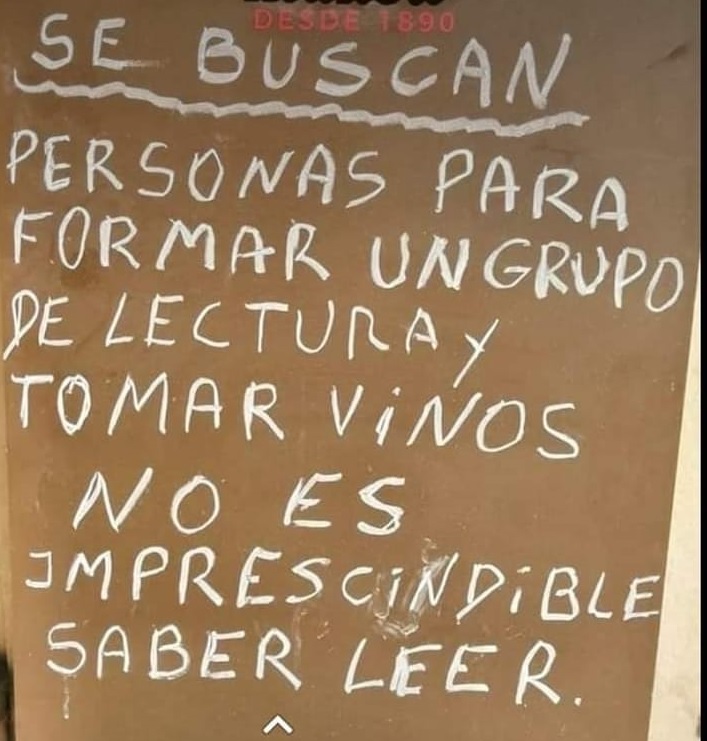 DESDE 1890
SE BUSCAN
PERSONAS PARA
FORMAR UN GRUPO
DE LECTURA Y
TOMAR ViNOS
NO ES
IMPRESCiNDiBLE
SABER LEER.